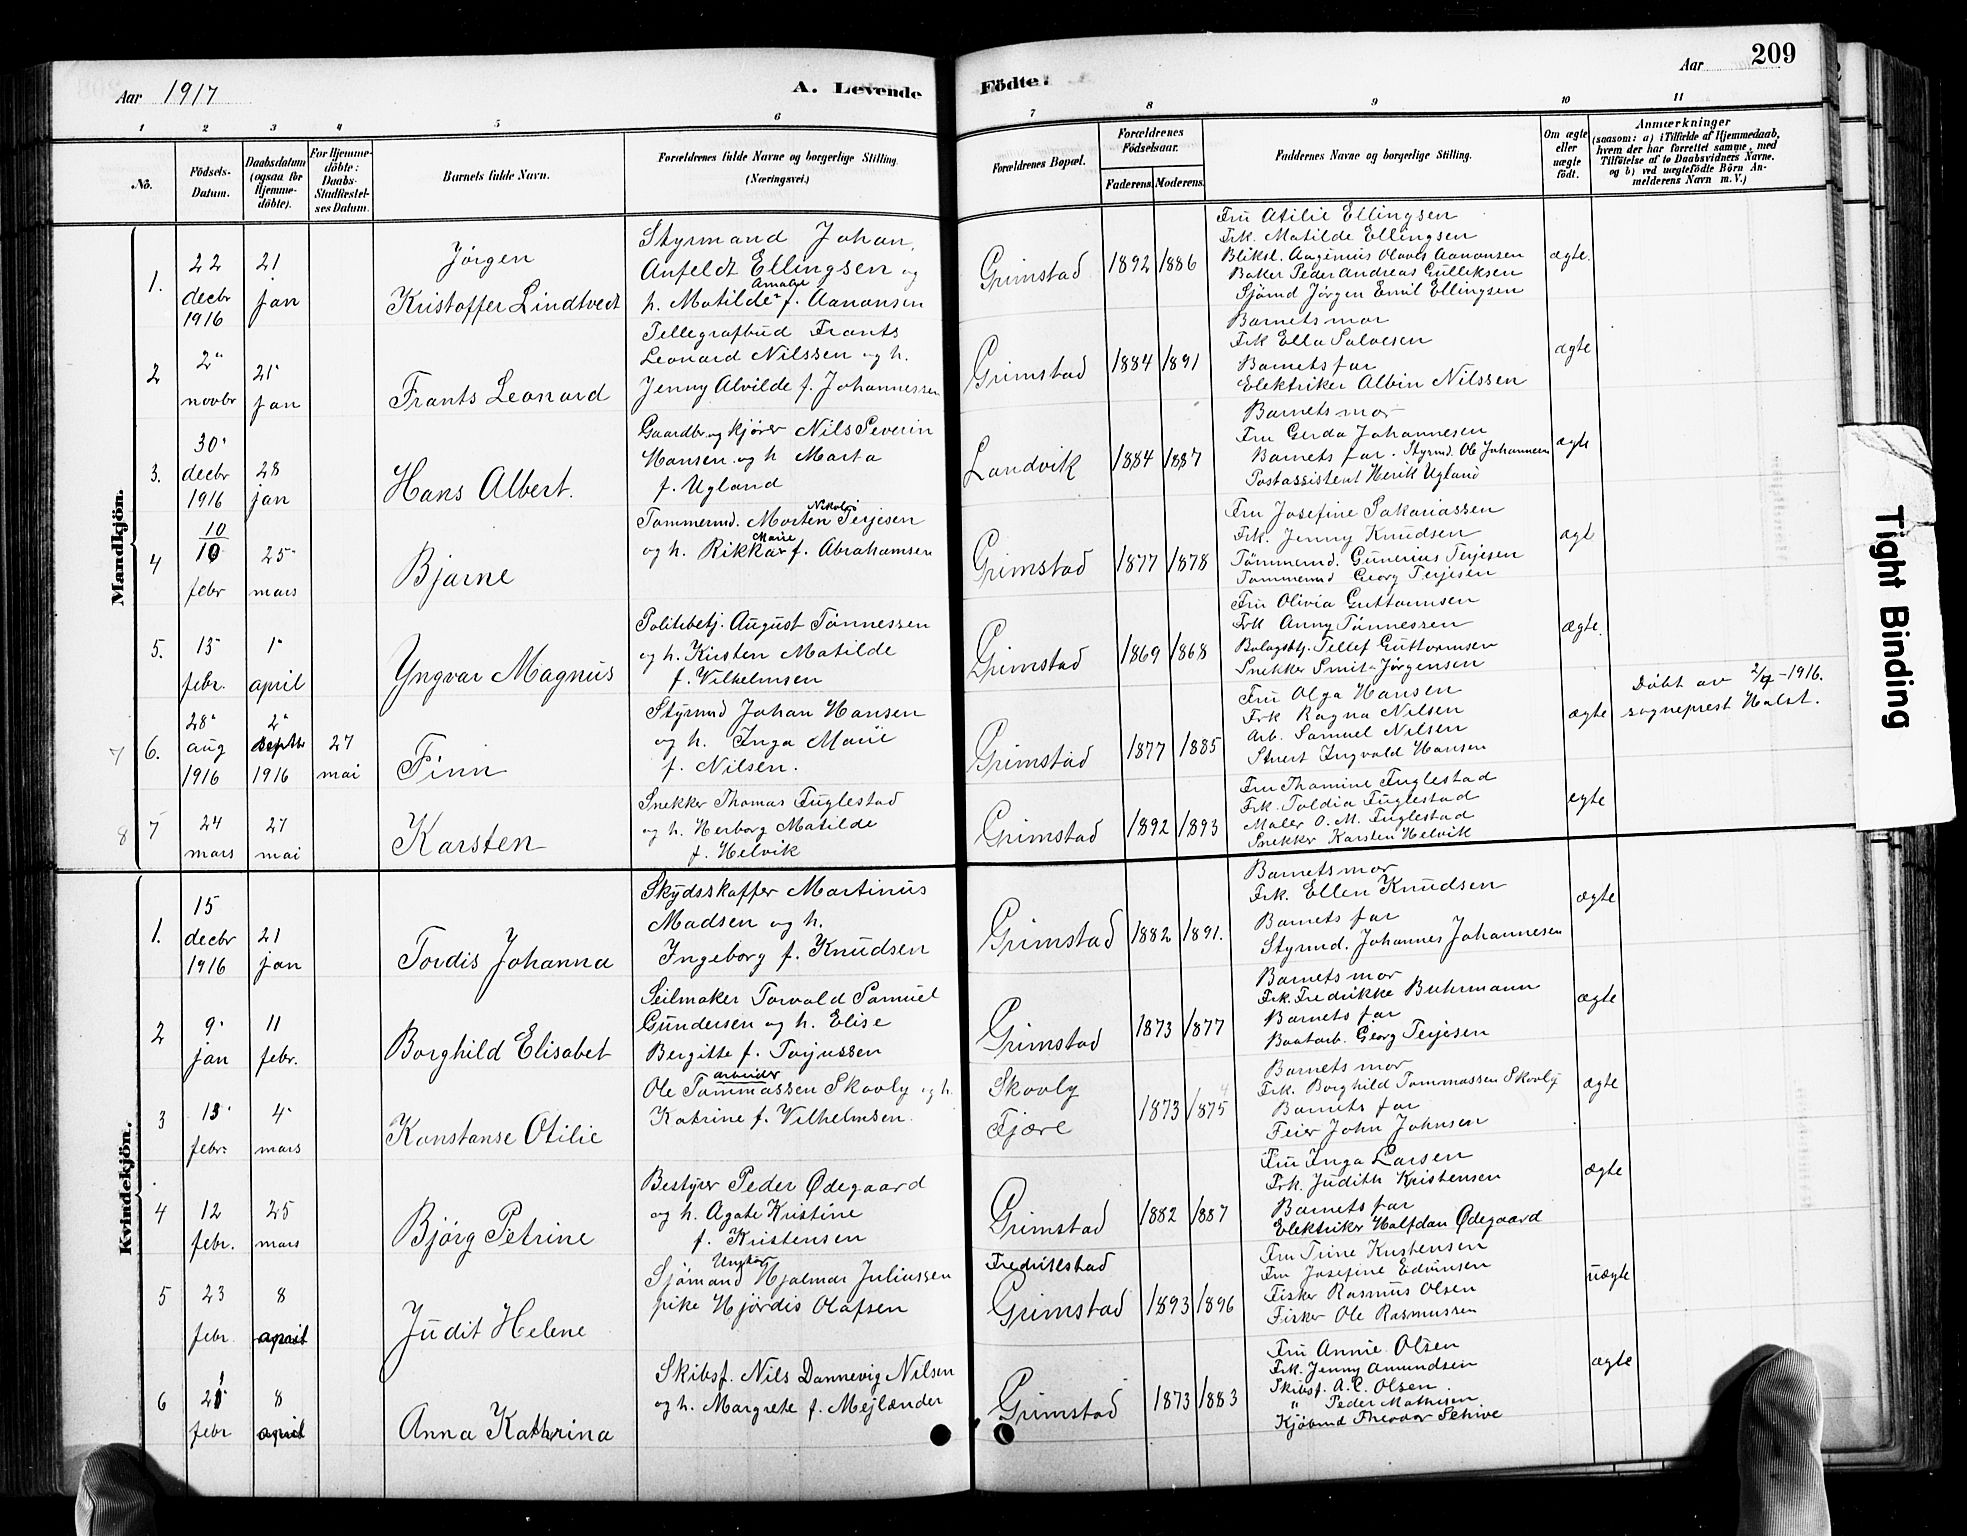 Aar 1917
A. Levende Födte.
Aar 209
1 2 3 4 5 6 7 8 9 10 11
No.
Födsels-Datum.
Daabsdatum (ogsaa for Hjemme-döbte).
For Hjemme-döbte: Daabs-Stadfæstel-ses Datum.
Barnets fulde Navn.
Forældrenes fulde Navne og borgerlige Stilling.
(Næringsvei.)
Forældrenes Bopæl.
Forældrenes Födselsaar.
Faderens. Moderens.
Faddernes Navne og borgerlige Stilling.
Om ægte eller uægte født.
Anmærkninger
(saasom: a) i Tilfælde af Hjemmedaab, hvem der har forrettet samme, med Tilföielse af to Daabsvidners Navne. og b) ved uægtefödte Börn An-melderens Navn m. V.)
Mandkjön.
1. 22 decbr 1916
21 jan
Jørgen
Kristoffer Lindtvedt
Styrmand Johan
Anfeldt Ellingsen og
h. Matilde Amalie f. Aanonsen
Grimstad
1892 1886
Fru Otilie Ellingsen
Frk. Matilde Ellingsen
Blikksl. Augenius Olaves Aanonsen
Baker Peder Andreas Gulliksen
Sjømd Jørgen Emil Ellingsen
ægte.
2 2 novbr
21 jan
Frants Leonard
Tellegrafbud Frants
Leonard Nilssen og h.
Jenny Alvilde f. Johannessen
Grimstad
1884 1891
Barnets mor
Frk Ella Salvesen
Barnets far
Elektriker Albin Nilssen
ægte
3. 30 decbr 1916
28 jan
Hans Albert.
Gaardbr. og kjører Nils Severin
Hansen og h Marta
f. Ugland
Landvik
1884 1887
Barnets mor
Fru Gerda Johannesen
Barnets far. Styrmd. Ole Johannesen
Postassistent Henrik Ugland
ægte
4 10/10 febr
25 mars
Bjarne
Tømmermd. Morten Nikolai Terjesen
og h. Rikka Marie f. Abrahamsen
Grimstad
1877 1878
Fru Josefine Sakariassen
Frk. Jenny Knudsen
Tømmermd. Gunerius Terjesen
Tømmermd Georg Terjesen
ægt
5. 15 febr.
1 april
Yngvar Magnus
Politibetj. August Tønnessen
og h. Kirsten Matilde
f. Vilhelmsen
Grimstad
1869 1868
Fru Olivia Guttormsen
Frk Anny Tønnessen
Bolagsbtj. Tellef Guttormsen
Snekker Smit-Jørgensen
ægte.
7 6. 28 aug 1916
2 septbr 1916
27 mai
Finn
Styrmd Johan Hansen
og h. Inga Marie
f. Nilsen.
Grimstad
1877 1885
Fru Olga Hansen
Frk Ragna Nilsen
Arb. Samuel Nilsen
Stuert Ingvald Hansen
ægte
Døbt av 2/9-1916.
sogneprest Holst.
8 7 24 mars
27 mai
Karsten
Snekker Thomas Fuglestad
og h. Herborg Matilde
f. Helvik
Grimstad
1892 1893
Fru Thomine Fuglestad
Frk. Toldia Fuglestad
Maler O. M. Fuglestad
Snekker Karsten Helvik
egte
Kvindekjön.
1. 15 decbr 1916
21 jan
Tordis Johanna
Skydsskaffer Martinus
Madsen og h.
Ingeborg f. Knudsen
Grimstad
1882 1891.
Barnets mor
Frk. Ellen Knudsen
Barnets far
Styrmd. Johannes Johannesen
ægte
2 9 jan
11 febr.
Borghild Elisabet
Seilmaker Torvald Samuel
Gundersen og h. Elise
Bergitte f. Torjussen
Grimstad
1873 1877
Barnets mor
Frk. Fredrikke Buhrmann
Barnets far
Baatarb. Georg Terjesen
ægte
3 13 febr.
4 mars
Konstanse Otilie
arbeider
Ole Tommassen Skovly og h.
Katrine f. Vilhelmsen.
Skovly
Fjære
1873 1875 4
Barnets mor
Frk. Borghild Tommassen Skovly
Barnets far
Feier John Johnsen
ægte
4 12 febr.
25 mars
Bjørg Petrine
Bestyrer Peder Ødegaard
og h. Agate Kristine
f. Kristensen
Grimstad
1882 1887
Fru Inga Larsen
Frk. Judith Kristensen
Barnets far
Elektriker Halfdan Ødegaard
ægte
5 23 febr
8 april
Judit Helene
Ungkar
Sjømand Hjalmar Juliussen
pike Hjørdis Olafsen
Fredrikstad
Grimstad
1893 1896
Fru Trine Kristensen
Fru Josefine Edvinsen
Fisker Rasmus Olsen
Fisker Ole Rasmussen
uægte
6 21 febr
8 april
Anna Kathrina
Skibsf. Nils Dannevig Nilsen
og h. Margrete f. Mejlænder
Grimstad
1873 1883
Fru Annie Olsen
Frk. Jenny Amundsen
Skibsf. A. C. Olsen.
" Peder Mathisen
Kjøbmd Theodor Schive
ægte
Tight Binding